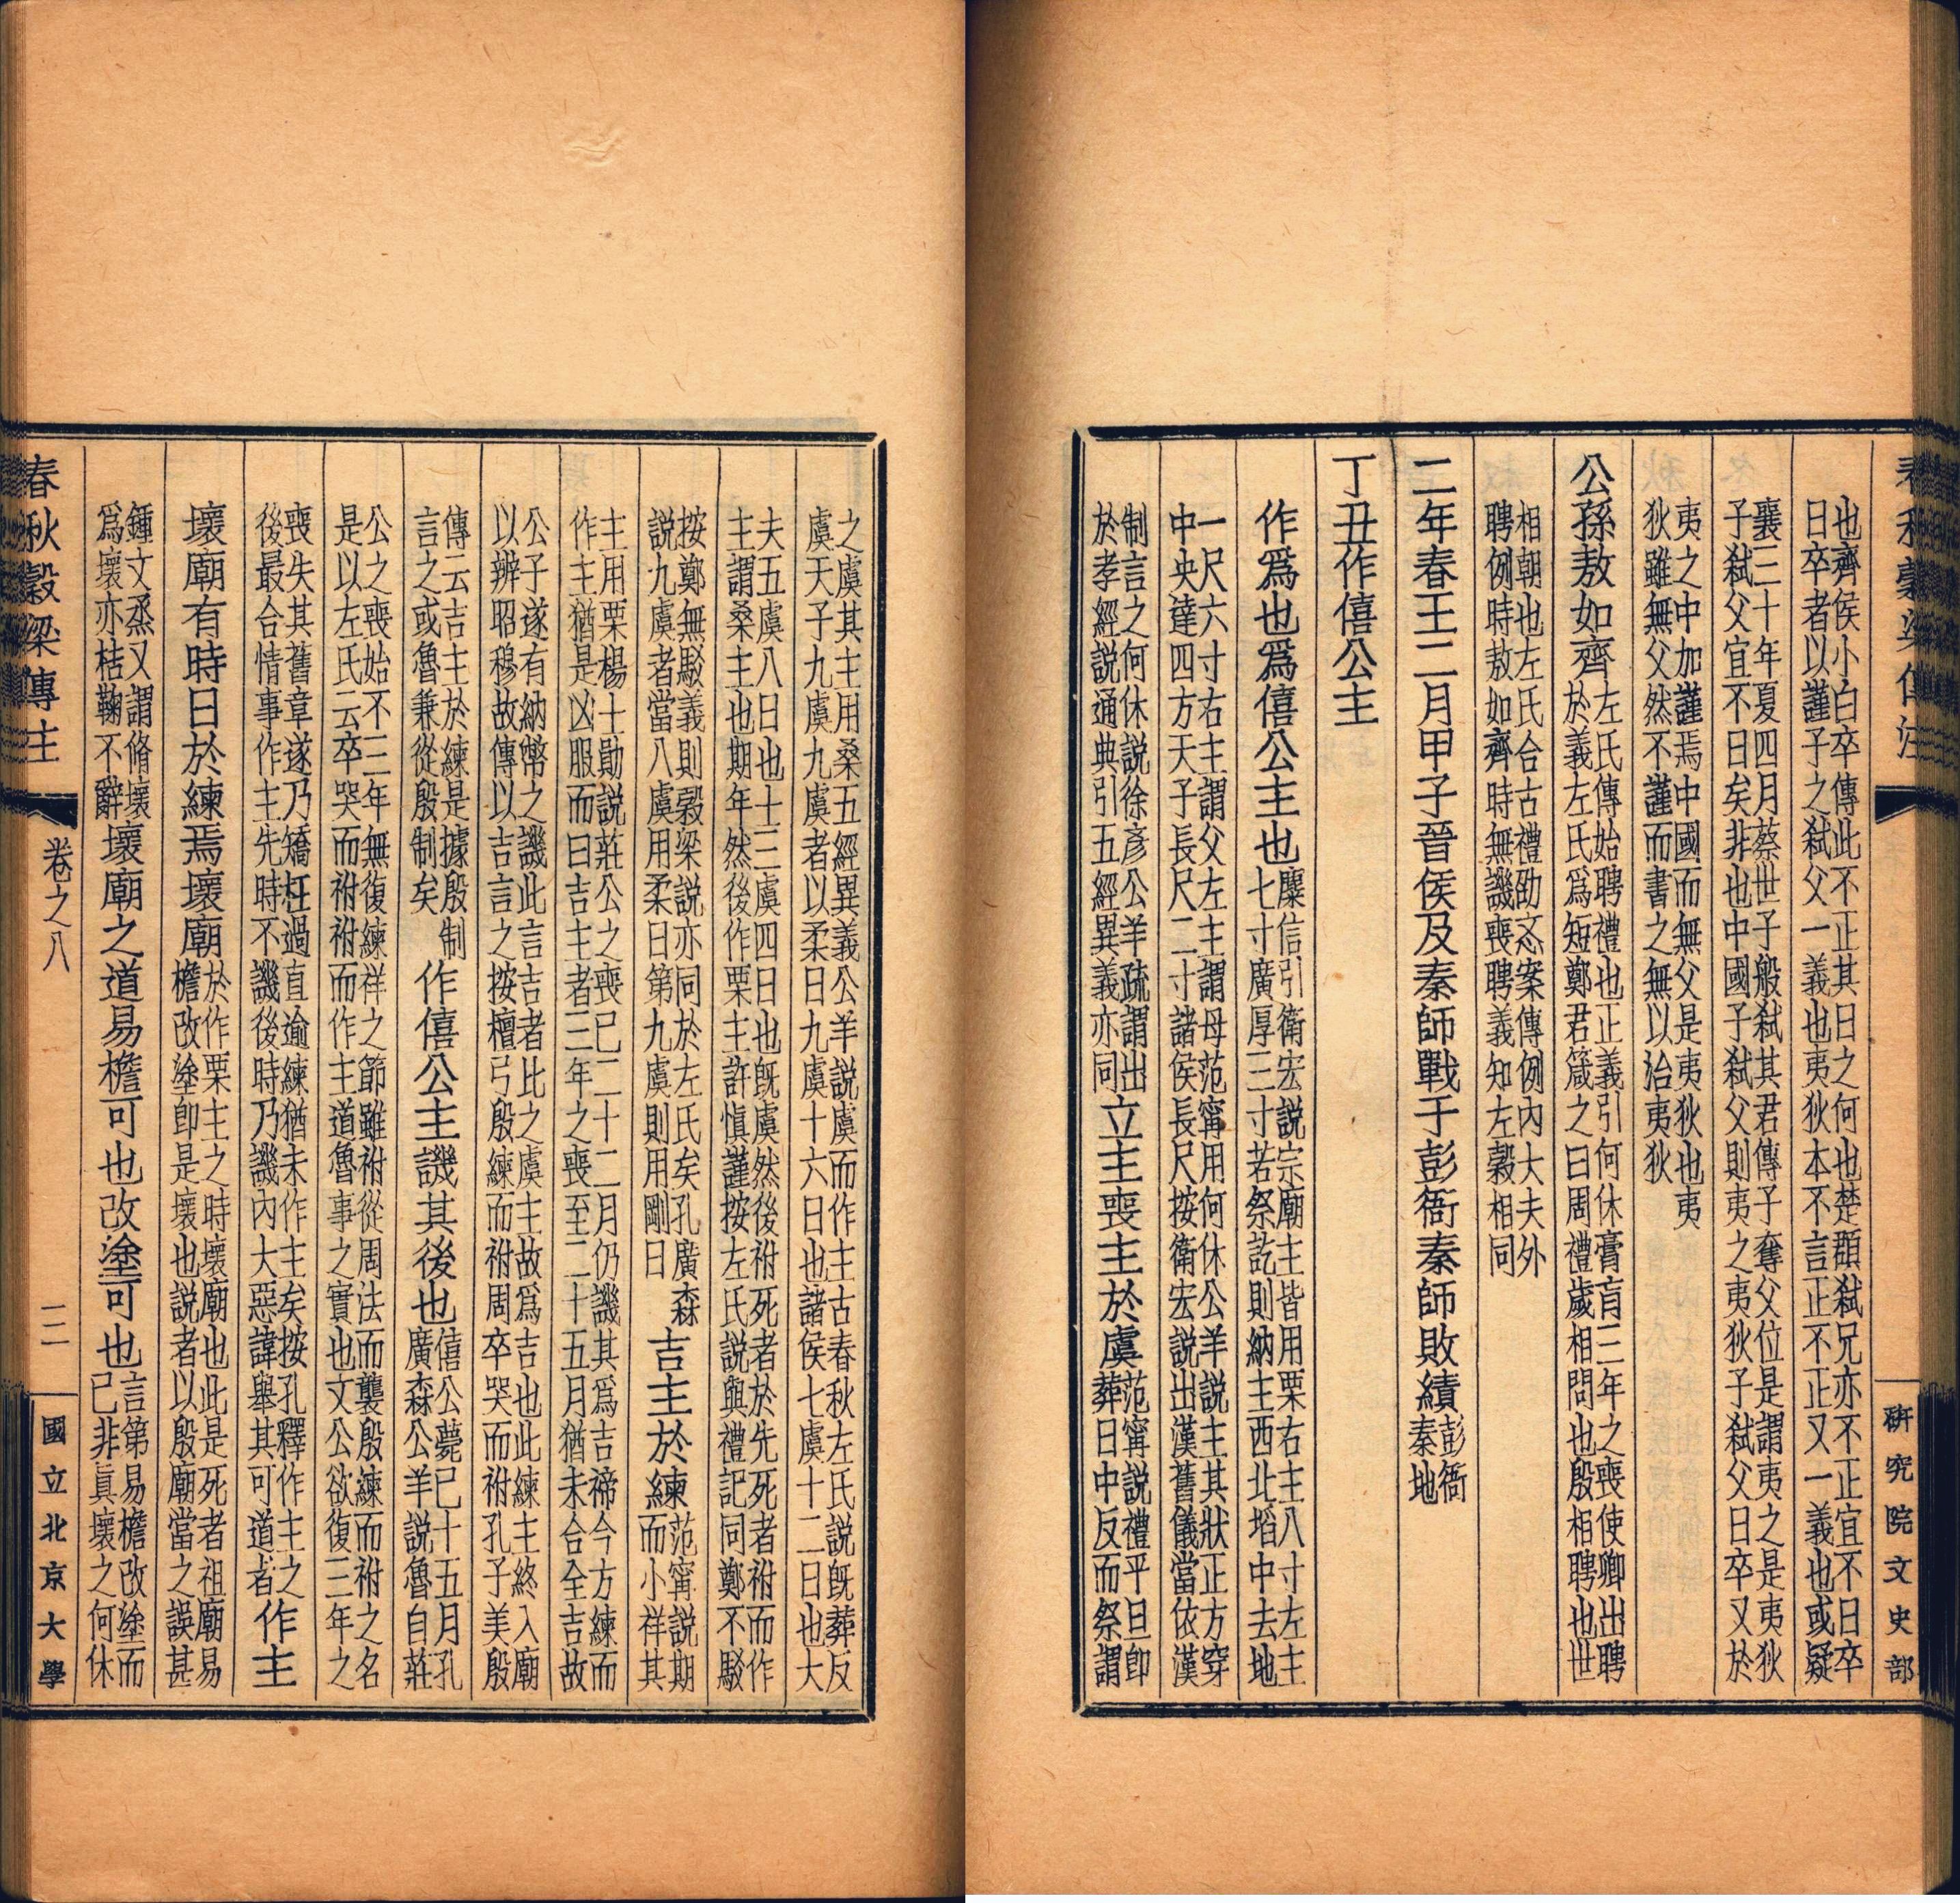 春秋穀梁傳注
研究院文史部
也齊侯小白卒傳此不正其日之何也楚頵弒兄亦不正宜不日卒
日卒者以謹子之弒父一義也夷狄本不言正不正又一義也或疑
襄三十年夏四月蔡世子般弒其君傳子奪父位是謂夷之是夷狄
子弒父宜不日矣非也中國子弒父則夷之夷狄子弒父日卒又於
夷之中加謹焉中國而無父是夷狄也夷
狄雖無父然不謹而書之無以治夷狄
公孫敖如齊左氏傳始聘禮也正義引何休膏肓三年之喪使卿出聘
於義左氏爲短鄭君箴之曰周禮歲相問也殷相聘也世
相朝也左氏合古禮劭忞案傳例內大夫外
聘例時敖如齊時無譏喪聘義知左穀相同
二年春王二月甲子晉侯及秦師戰于彭衙秦師敗績彭衙
秦地
丁丑作僖公主
作爲也爲僖公主也麋信引衛宏說宗廟主皆用栗右主八寸左主
七寸廣厚三寸若祭訖則納主西北埳中去地
一尺六寸右主謂父左主謂母范甯用何休公羊說主其狀正方穿
中央達四方天子長尺二寸諸侯長尺按衛宏說出漢舊儀當依漢
制言之何休說徐彥公羊疏謂出
於孝經說通典引五經異義亦同
立主喪主於虞范甯說禮平旦卽
葬日中反而祭謂
之虞其主用桑五經異義公羊說虞而作主古春秋左氏說既葬反
虞天子九虞九虞者以柔日九虞十六日也諸侯七虞十二日也大
夫五虞八日也士三虞四日也既虞然後祔死者於先死者祔而作
主謂桑主也期年然後作栗主許慎謹按左氏說與禮記同鄭不駁
按鄭無駁義則穀梁說亦同於左氏矣孔廣森
說九虞者當八虞用柔日第九虞則用剛日
吉主於練范甯說期
而小祥其
主用栗楊士勛說莊公之喪已二十二月仍譏其爲吉禘今方練而
作主猶是凶服而曰吉主者三年之喪至二十五月猶未合全吉故
公子遂有納幣之譏此言吉者比之虞主故爲吉也此練主終入廟
以辨昭穆故傳以吉言之按檀弓殷練而祔周卒哭而祔孔子美殷
傳云吉主於練是據殷制
言之或魯兼從殷制矣
作僖公主譏其後也僖公薨已十五月孔
廣森公羊說魯自莊
公之喪始不三年無復練祥之節雖祔從周法而襲殷練而祔之名
是以左氏云卒哭而祔祔而作主道魯事之實也文公欲復三年之
喪失其舊章遂乃矯枉過直逾練猶未作主矣按孔釋作主之
後最合情事作主先時不譏後時乃譏內大惡諱舉其可道者
作主
壞廟有時日於練焉壞廟於作栗主之時壞廟也此是死者祖廟易
檐改塗卽是壞也說者以殷廟當之誤甚
鍾文烝又謂脩壞
爲壞亦梏鞠不辭
壞廟之道易檐可也改塗可也言第易檐改塗而
已非真壞之何休
春秋穀梁傳注
卷之八
二
國立北京大學